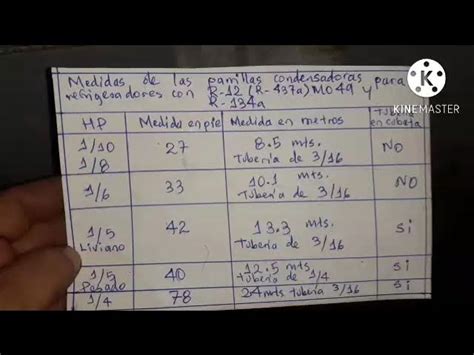 Medidas de las parrillas condensadoras para
refrigeradores con R-12 (R-437a) MO49 y
R-134a
HP
Medida en pie
Medida en metros
Tuberia
en Cubeta
1/10
1/8
27
8.5 mts.
Tuberia de 3/16
NO
1/6
33
10.1 mts.
Tuberia de 3/16
NO
1/5
Liviano
42
13.3 mts.
Tuberia de 3/16
Si
1/5
Pesado
40
12.5 mts.
Tuberia de 1/4
Si
1/4
78
24 mts tuberia 3/16
Si
K
KINEMASTER